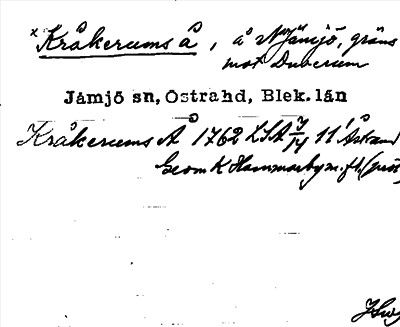 x Kråkerums å, å N Jämjö, gräns
mot Duverum
Jämjö sn, Östra hd, Blek. län
Kråkerums Å 1762 LSA 11 Åstrand
Geom K Hammarby m.fl.